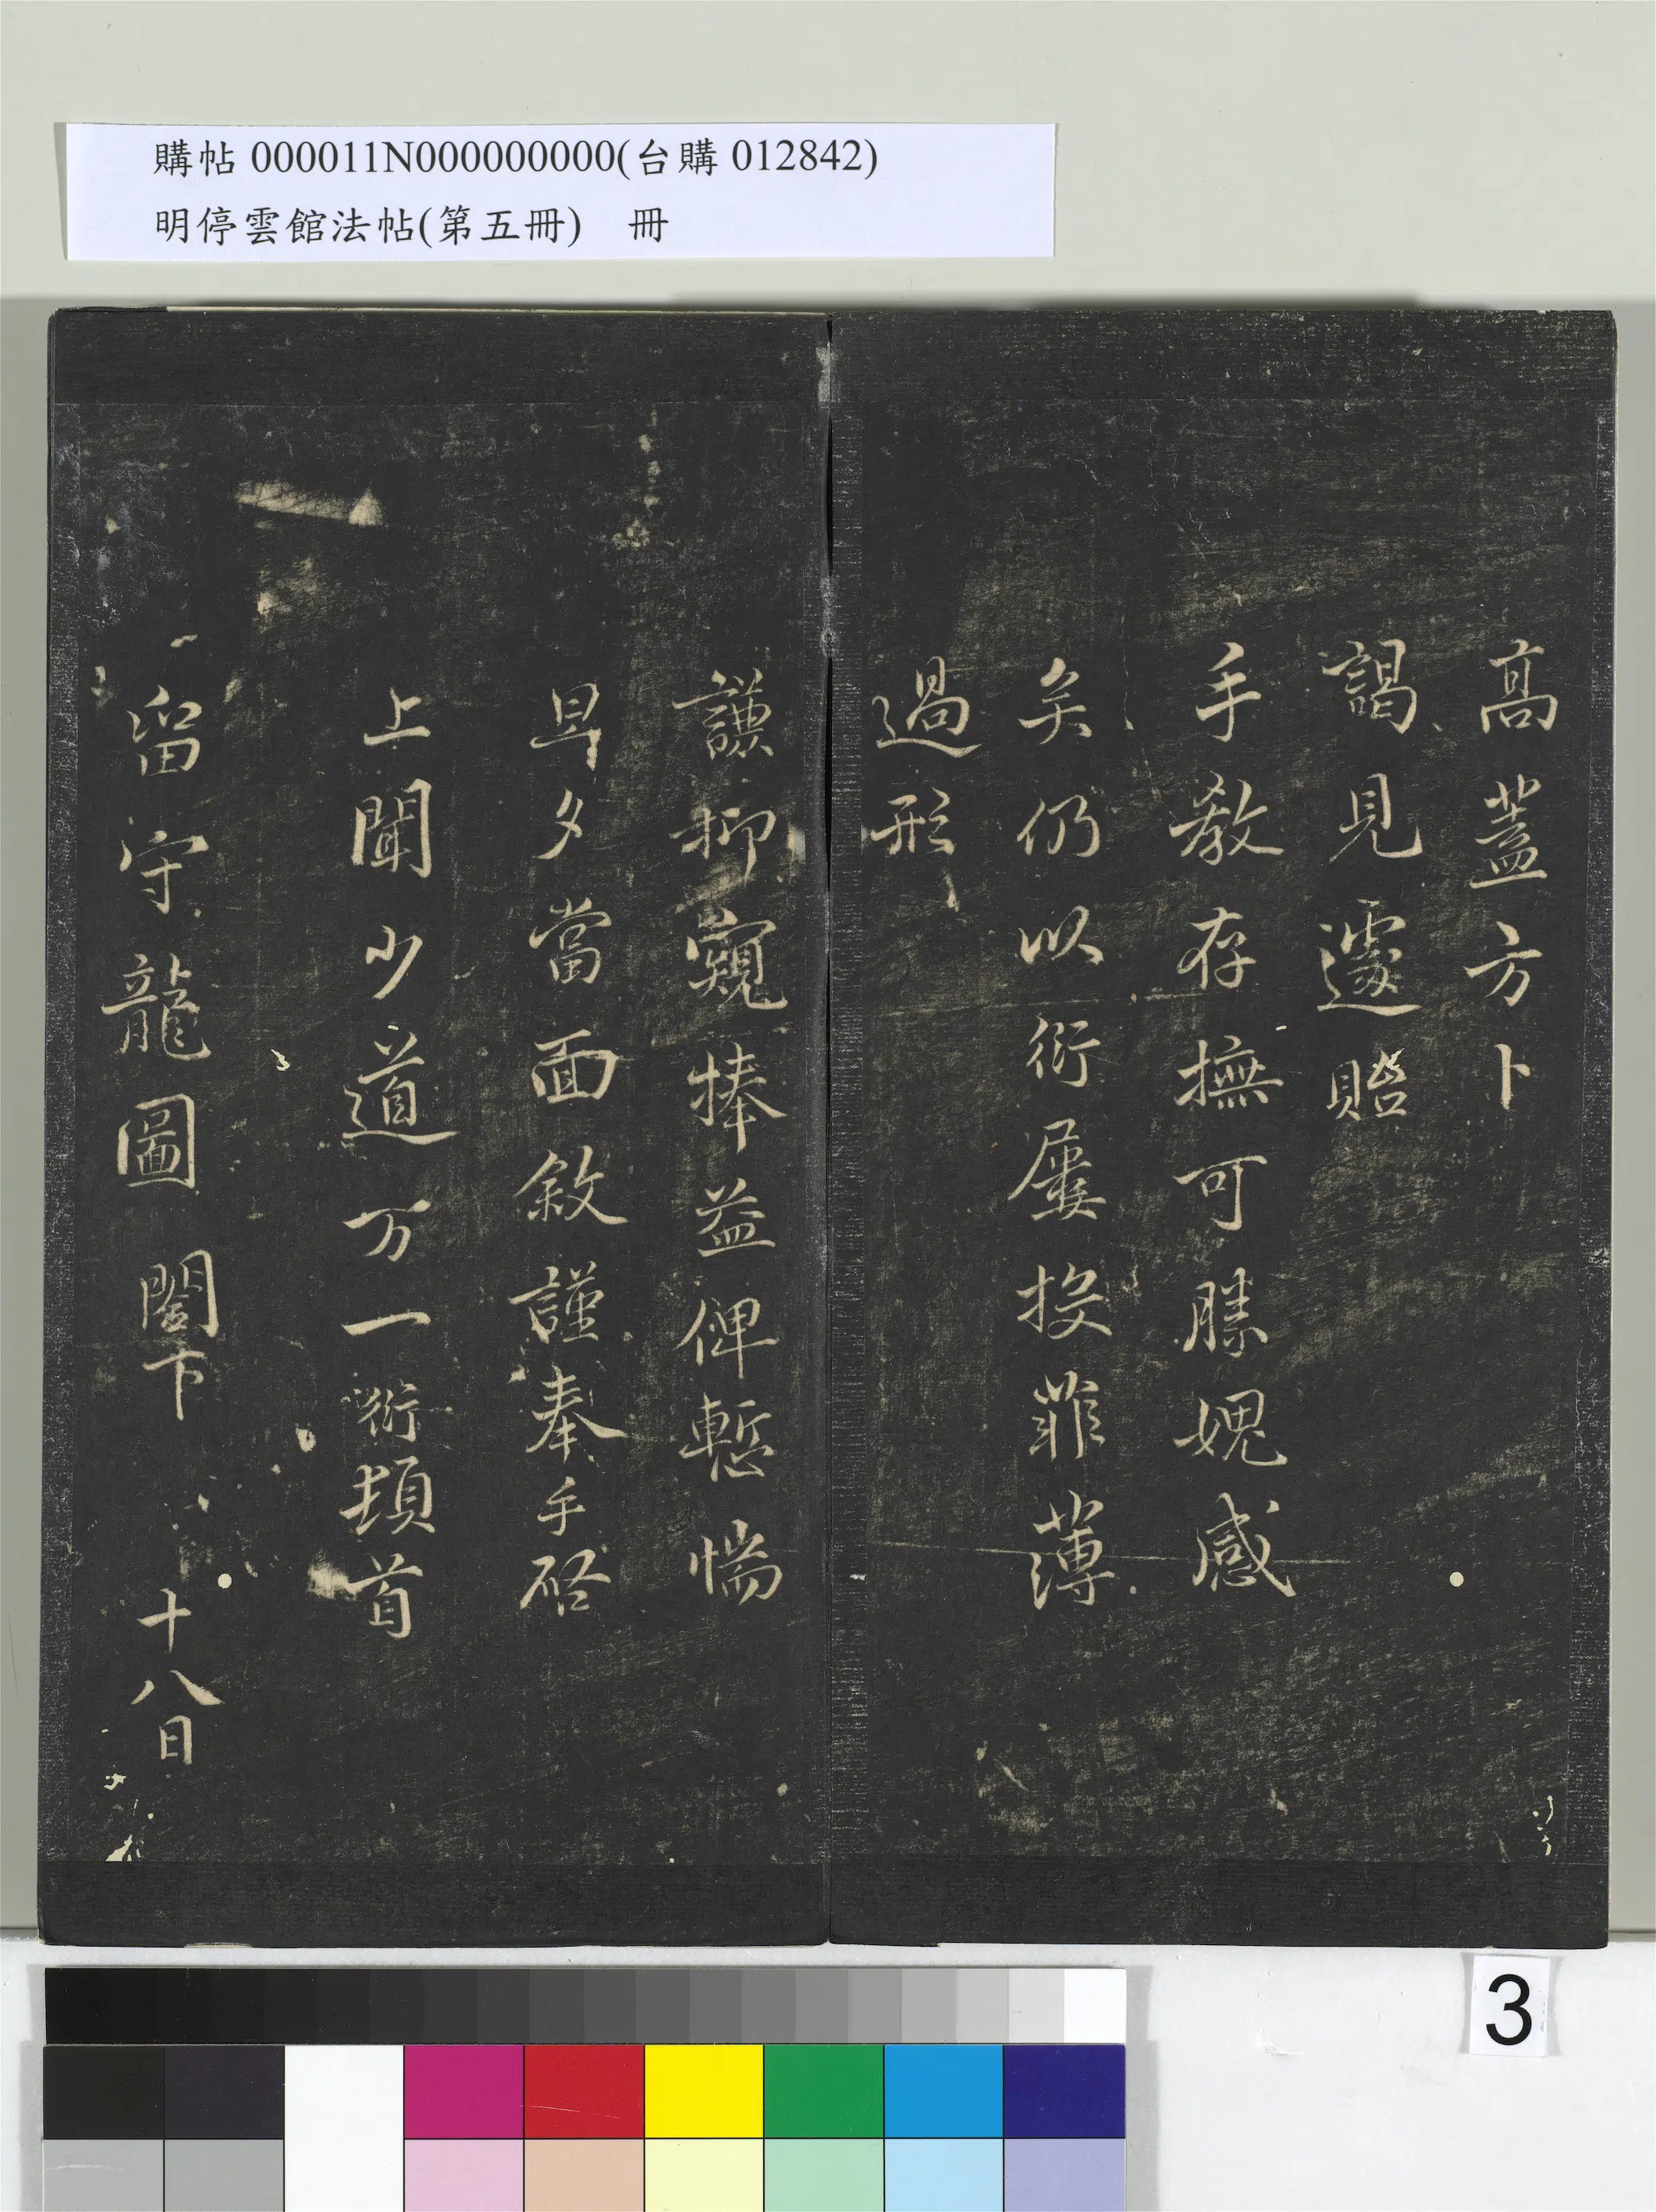 購帖 000011N000000000(台購 012842)
明停雲館法帖(第五冊) 冊
髙蓋方卜
謁見遽貽
手教存撫可勝媿感
矣仍以衍屢投菲薄
過形
謙抑窺捧益俾慙惴
旦夕當面敘謹奉手啓
上聞少道万一衍頓首
留守龍圖閣下 十八日
3